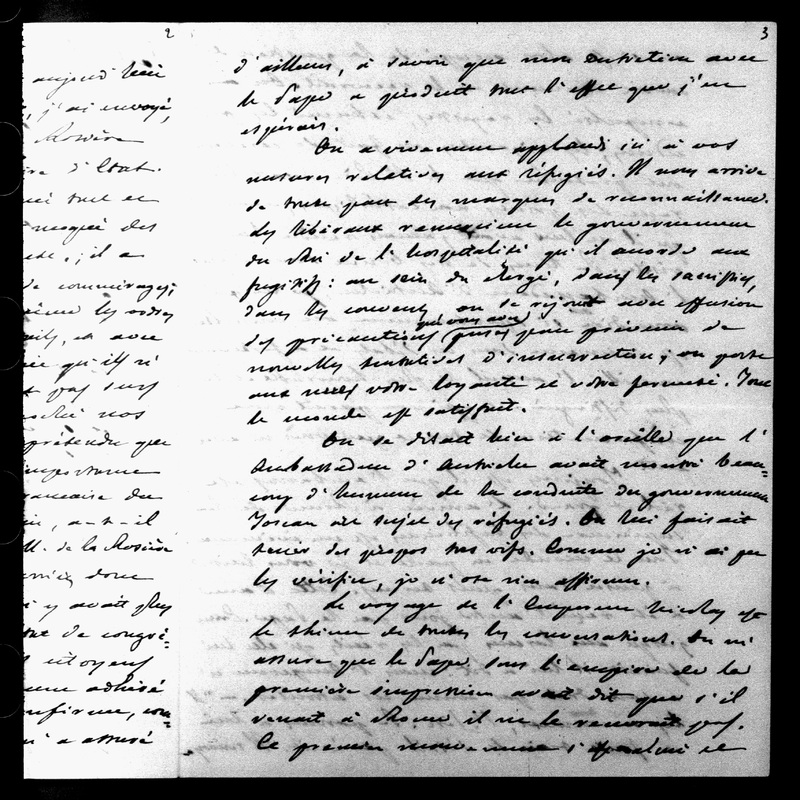 2
aujourd'hui
j'ai envoyé,
Rosière
d'Etat.
tout ce
des
il a
de commérages;
les ordres
et avec
qu'ils n'
pas sans
nos
prétendu que
importance
française du
a-t-il
M. de la Rosière
donc
n'y avait plus
de congré=
citoyens
adhéré
confirme, com=
m'a assuré
3
d'ailleurs, à savoir que mon entretien avec
le Pape a produit tout l'effet que j'en
espérais.
On a vivement applaudi ici à vos
mesures relatives aux réfugiés. Il nous arrive
de toute part des marques de reconnaissance.
Les libéraux remercient le gouvernement
du Roi de l'hospitalité qu'il accorde aux
fugitifs: au sein du clergé, dans les sacristies,
dans les couvents on se réjouit avec effusion
des précautions que vous avez prises pour prévenir de
nouvelles tentatives d'insurrection; on porte
aux nues votre loyauté et votre fermeté. Tout
le monde est satisfait.
On se disait hier à l'oreille que l'
Ambassadeur d'Autriche avait montré beau=
coup d'humeur de la conduite du gouvernement
Toscan au sujet des réfugiés. On lui faisait
tenir des propos très vifs. Comme je n'ai pu
les vérifier, je n'ose rien affirmer.
Le voyage de l'Empereur Nicolas est
le thème de toutes les conversations. On m'
assure que le Pape sous l'empire de la
première impression avait dit que s'il
venait à Rome il ne le recevrait pas.
Ce premier mouvement s'est calmé et